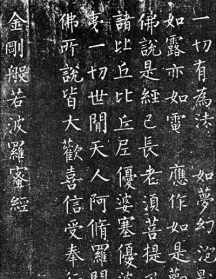 一切有為法 如夢幻泡
如露亦如電 應作如是
佛說是經已長老須菩提及
諸比丘比丘尼優婆塞優婆
夷一切世間天人阿脩羅聞
佛所說皆大歡喜信受奉行
金剛般若波羅蜜經